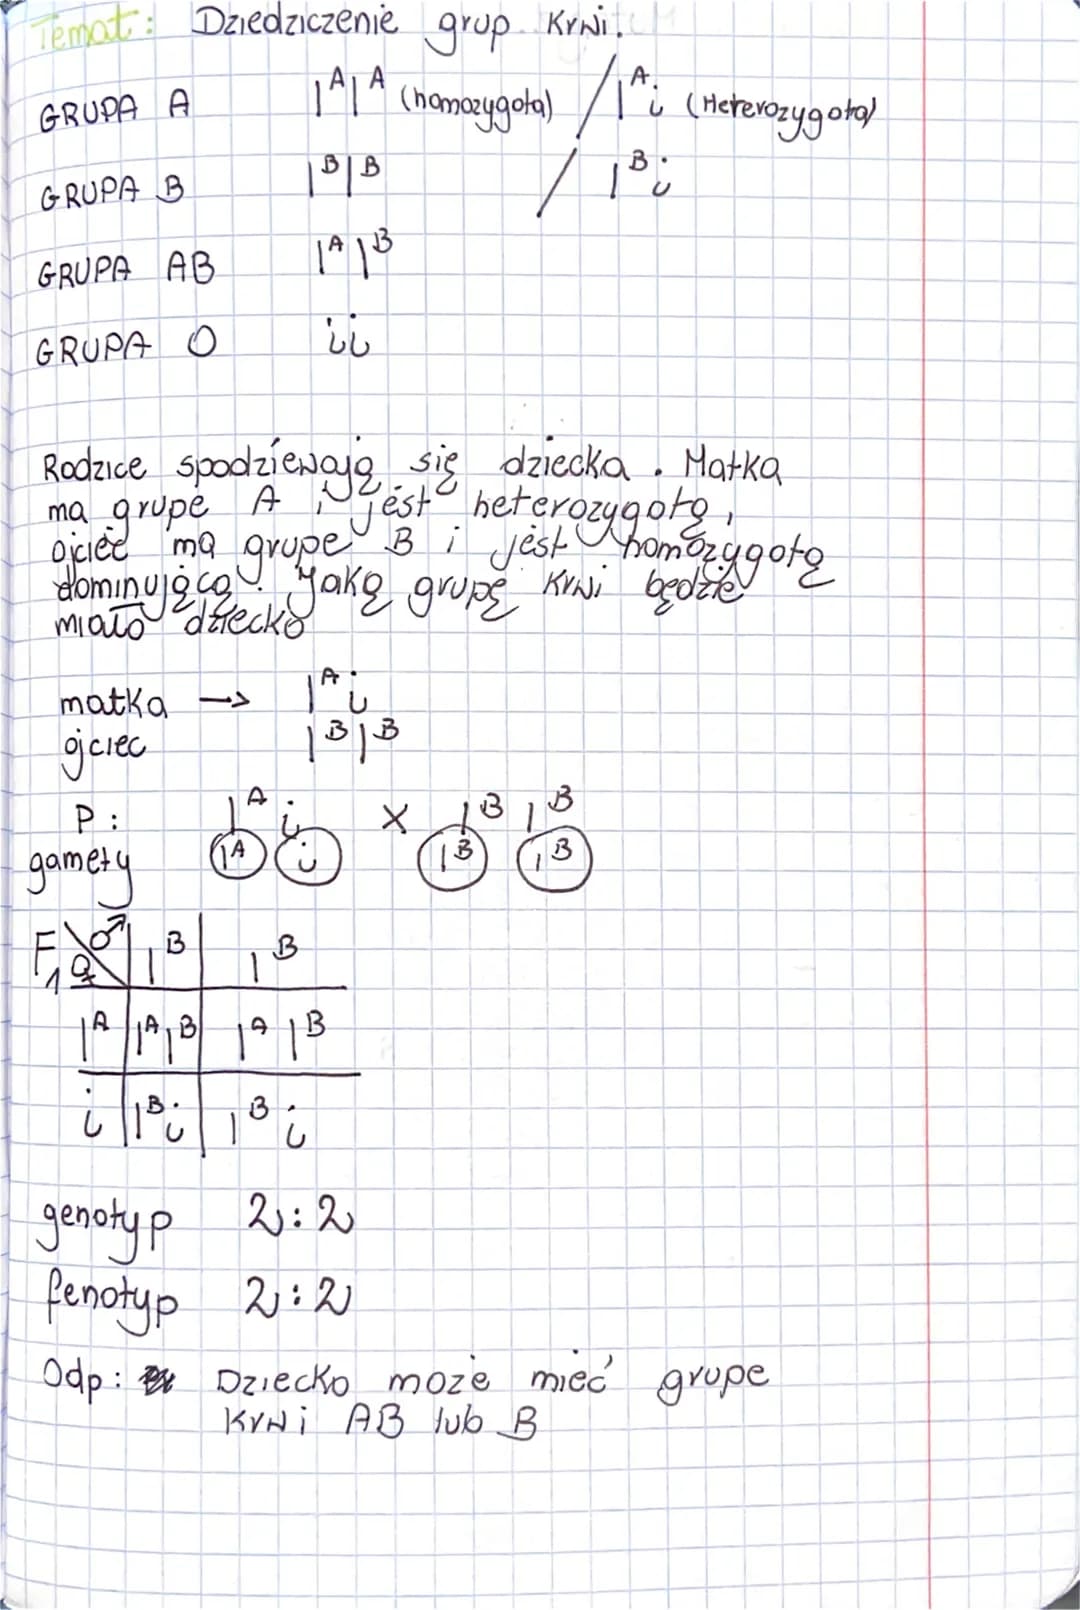 Temat: Dziedziczenie grup krwi.
GRUPA A I^A I^A (homozygota) / I^A i (Heterozygota)
GRUPA B I^B I^B / I^B i
GRUPA AB I^A I^B
GRUPA O ii
Rodzice spodziewają się dziecka. Matka
ma grupę A i jest heterozygotą,
ojciec ma grupę B i jest homozygotą
dominującą. Jaką grupę krwi będzie
miało dziecko
matka -> I^A i
ojciec I^B I^B
P: I^A i x I^B I^B
gamety I^A i I^B I^B
F1 ♀ ♂ I^B I^B
I^A I^A I^B I^A I^B
i I^B i I^B i
genotyp 2:2
fenotyp 2:2
Odp: Dziecko może mieć grupe
krwi AB lub B